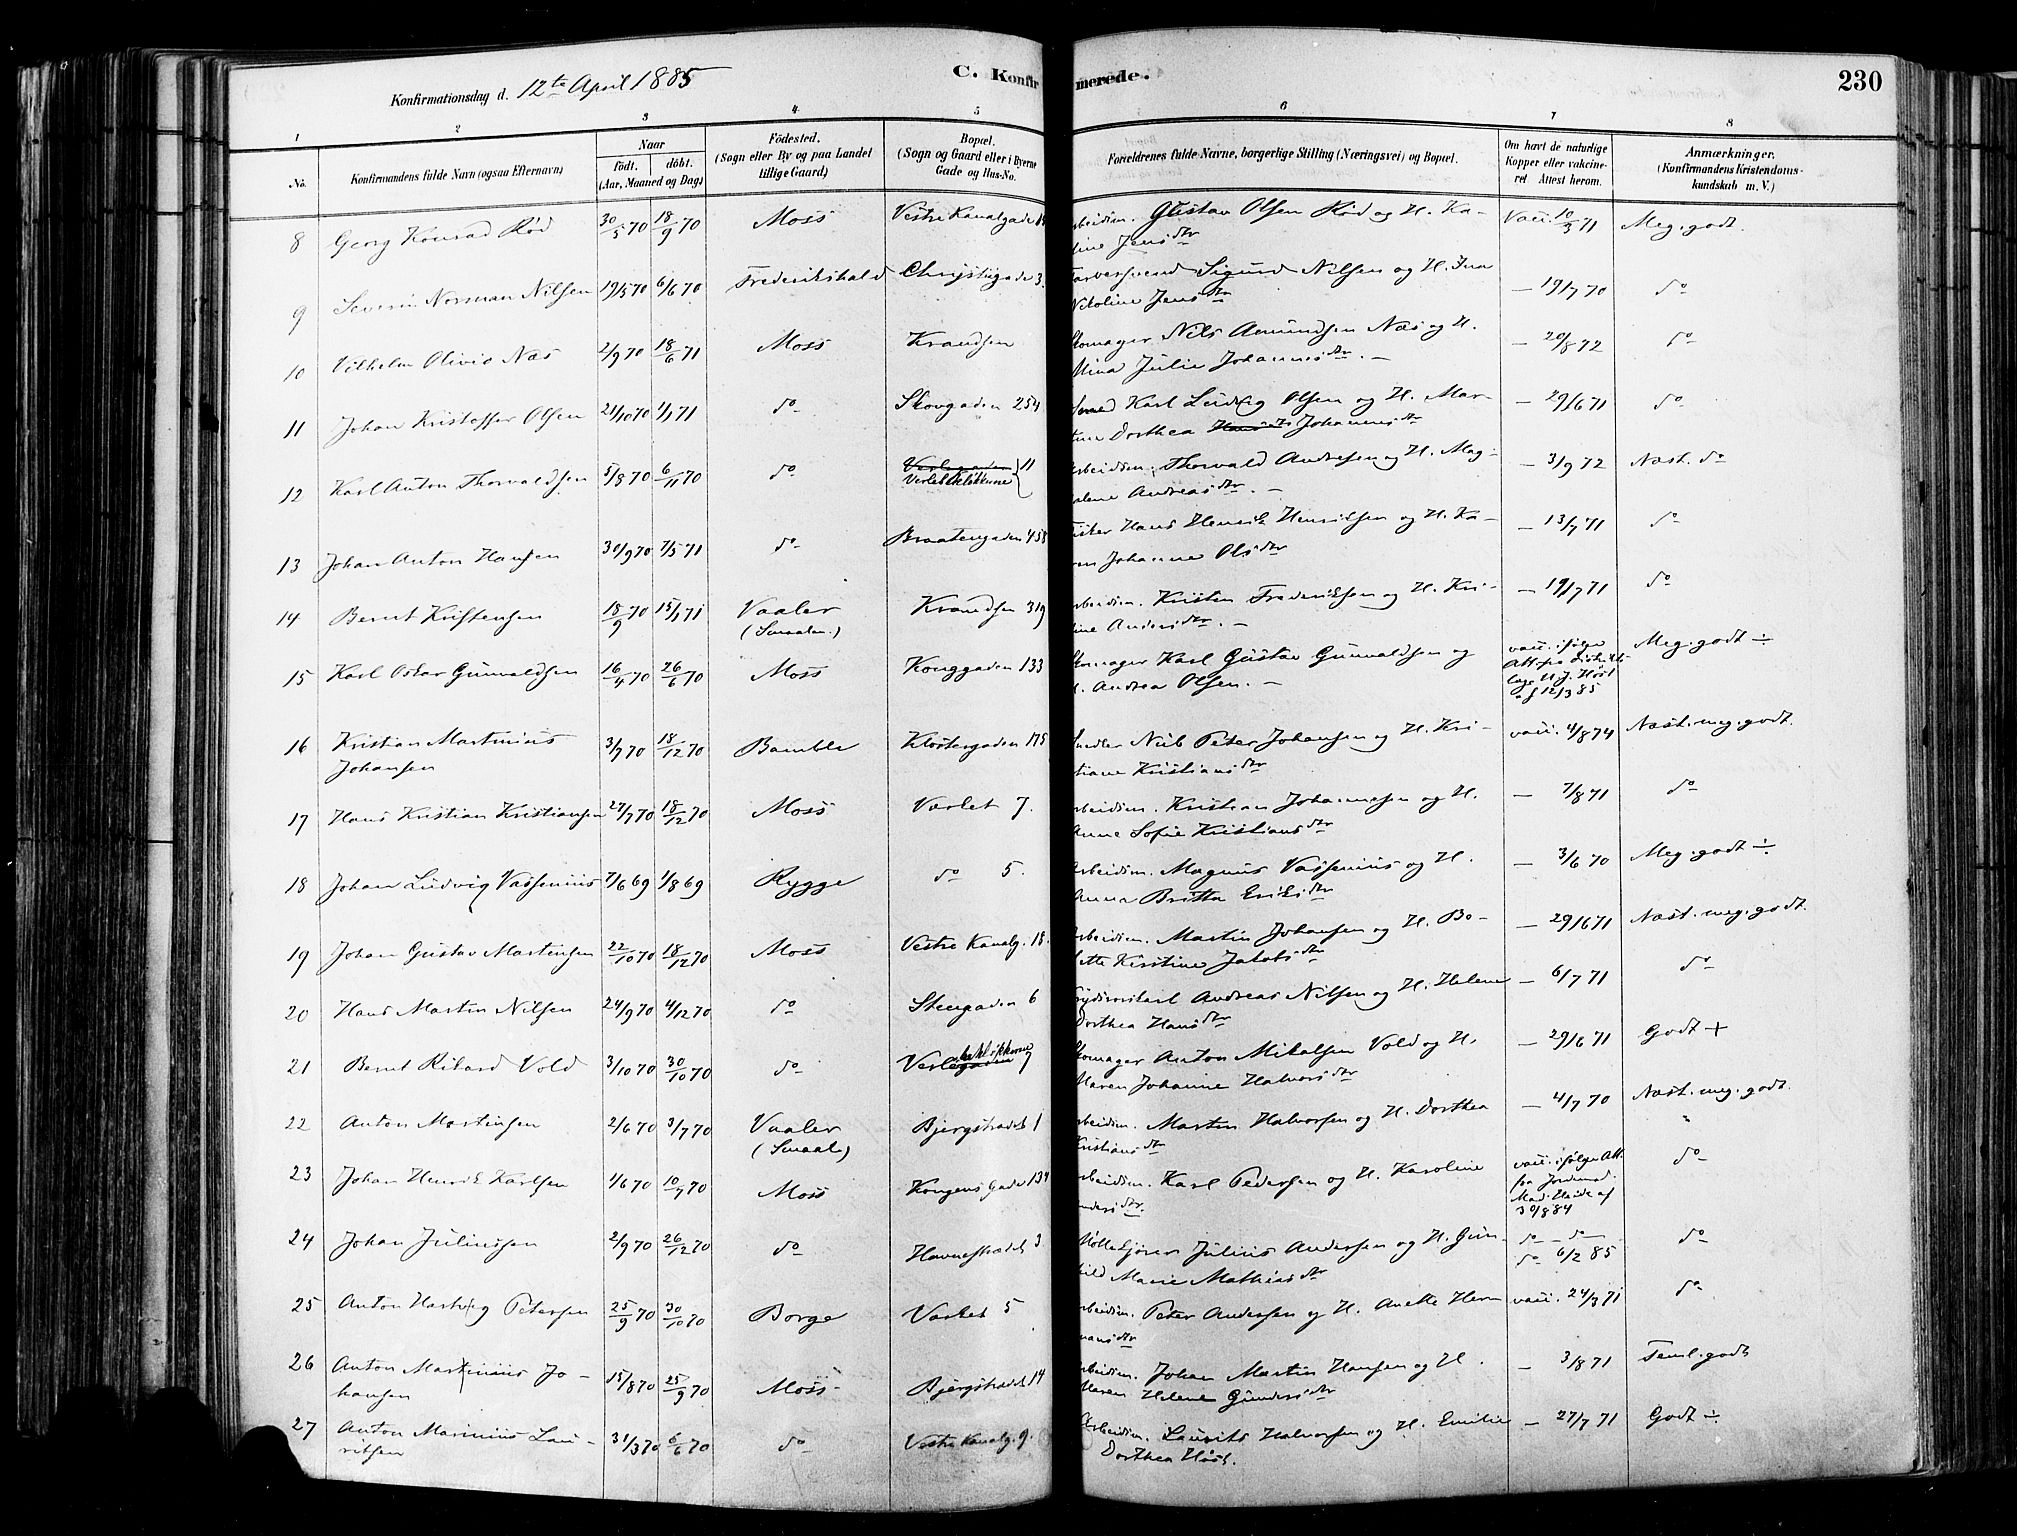 C. Konfirmerede.
230
Konfirmationsdag d. 12te April 1885
1 2 3 4 5 6 7 8
No. Konfirmandens fulde Navn (ogsaa Efternavn) Naar födt. döbt. (Aar, Maaned og Dag) Födested. (Sogn eller By og paa Landet tillige Gaard) Bopæl. (Sogn og Gaard eller i Byerne Gade og Hus-No. Forældrenes fulde Navne, borgerlige Stilling (Næringsvei) og Bopæl. Om havt de naturlige Kopper eller vakcineret Attest herom. Anmærkninger. (Konfirmandens Kristendomskundskab m. V.)
8 Georg Konrad Rød 30/5 70 18/9 70 Moss Vestre Kanalgade Arbeidsm. Gustav Olsen Rød og H. Ka- Vacc. 10/3 71 Meg. godt.
line Jensdtr
9 Severin Norman Nilsen 19/5 70 6/6 70 Frederikshald Christiegade 3 Farversvend Sigurd Nilsen og H. Ina — 19/7 70 do
Nikoline Jensdtr
10 Vilhelm Olivio Næs 2/9 70 18/6 71 Moss Krandsen Skomager Nils Amundsen Næs og H. — 20/8 72 do
Mina Julie Johannesdtr. —
11 Johan Kristoffer Olsen 21/10 70 1/1 71 do Skovgaden 254 Smed Karl Ludvig Olsen og H. Mar- — 29/6 71 do
tine Dorthea Johannesdtr
12 Karl Anton Thorvaldsen 5/8 70 6/11 70 do Værlegaden 11 Arbeidsm. Thorvald Andresen og H. Mag- — 3/9 72 Næst. do
Værlebakløkkerne
lene Andreasdtr. —
13 Johan Anton Hansen 30/9 70 7/5 71 do Braatengaden 458 Fisker Hans Henrik Henriksen og H. Ka- — 13/7 71 do
ren Johanne Olsdtr
14 Bernt Kristensen 18/9 70 15/1 71 Vaaler Krandsen 319 Arbeidsm. Kristen Frederiksen og H. Kri- — 19/7 71 do
(Smaalen.) stine Andersdtr. —
15 Karl Oskar Gunvaldsen 16/4 70 26/6 70 Moss Konggaden 133 Skomager Karl Gustav Gunvaldsen og vacc. ifølge Meg. godt ÷
H. Andrea Olsen. — Att. fra Distrikts-
læge U. J. Høst
af 12/3 85
16 Kristian Martinius 3/7 70 18/12 70 Bamble Klostergaden 175 Snedker Niels Peter Johansen og H. Kri- vacc. 4/8 74 Næst. meg. godt.
Johansen stiane Kristiansdtr
17 Hans Kristian Kristiansen 27/7 70 18/12 70 Moss Værlet 7. Arbeidsm. Kristian Johannesen og H. — 7/8 71 do
Anne Sofie Kristiansdtr
18 Johan Ludvig Vassenius 7/6 69 1/8 69 Rygge do 5. Arbeidsm. Magnus Vassenius og H. — 3/6 70 Meg. godt ÷.
Anna Britta Eriksdtr
19 Johan Gustav Martinsen 22/10 70 18/12 70 Moss Vestre Kanalg. 18. Arbeidsm. Martin Johansen og H. Bo- — 29/6 71 Næst. meg. godt.
lette Kirstine Jakobsdtr
20 Hans Martin Nilsen 24/9 70 4/12 70 do Steengaden 6 Andreas Nilsen og H. Helene — 6/7 71 do
Dorthea Hansdtr
21 Bernt Rikard Vold 3/10 70 30/10 70 do Værlegaden 7 Skomager Anton Mikalsen Vold og H. — 29/6 71 Godt +
Maren Johanne Halvorsdtr
22 Anton Martinsen 2/6 70 3/7 70 Vaaler Bjergstrædet 1 Arbeidsm. Martin Halvorsen og H. Dorthea — 4/7 70 Næst. meg. godt.
(Smaal.) Kristiansdtr
23 Johan Henrik Karlsen 1/6 70 10/7 70 Moss Kongens Gade 134 Arbeidsm. Karl Pedersen og H. Karoline vacc. ifølge Att. do
Andersdtr fra Jordemod.
Mad. Heide af
30/8 84
24 Johan Juliussen 2/9 70 26/12 70 do Havnestrædet 3 Møllekjører Julius Andersen og H. Gun- do — do — do
hild Marie Mathiasdtr do 6/2 85
25 Anton Hartvig Petersen 25/9 70 30/10 70 Borge Værlet 5 Arbeidsm. Peter Andersen og H. Anette Her- vacc. 24/3 71 do
mansdtr
26 Anton Martinius Jo- 15/8 70 25/9 70 Moss Bjergstrædet 14 Arbeidsm. Johan Martin Hansen og H. — 3/8 71 Teml. godt
hansen Maren Helene Gundersdtr
27 Anton Marinius Lau- 31/3 70 6/6 70 do Vestre Kanalg. 9. Arbeidsm. Laurits Halvorsen og H. Emilie — 27/7 71 Godt ÷
ritsen Dorthea Høst.